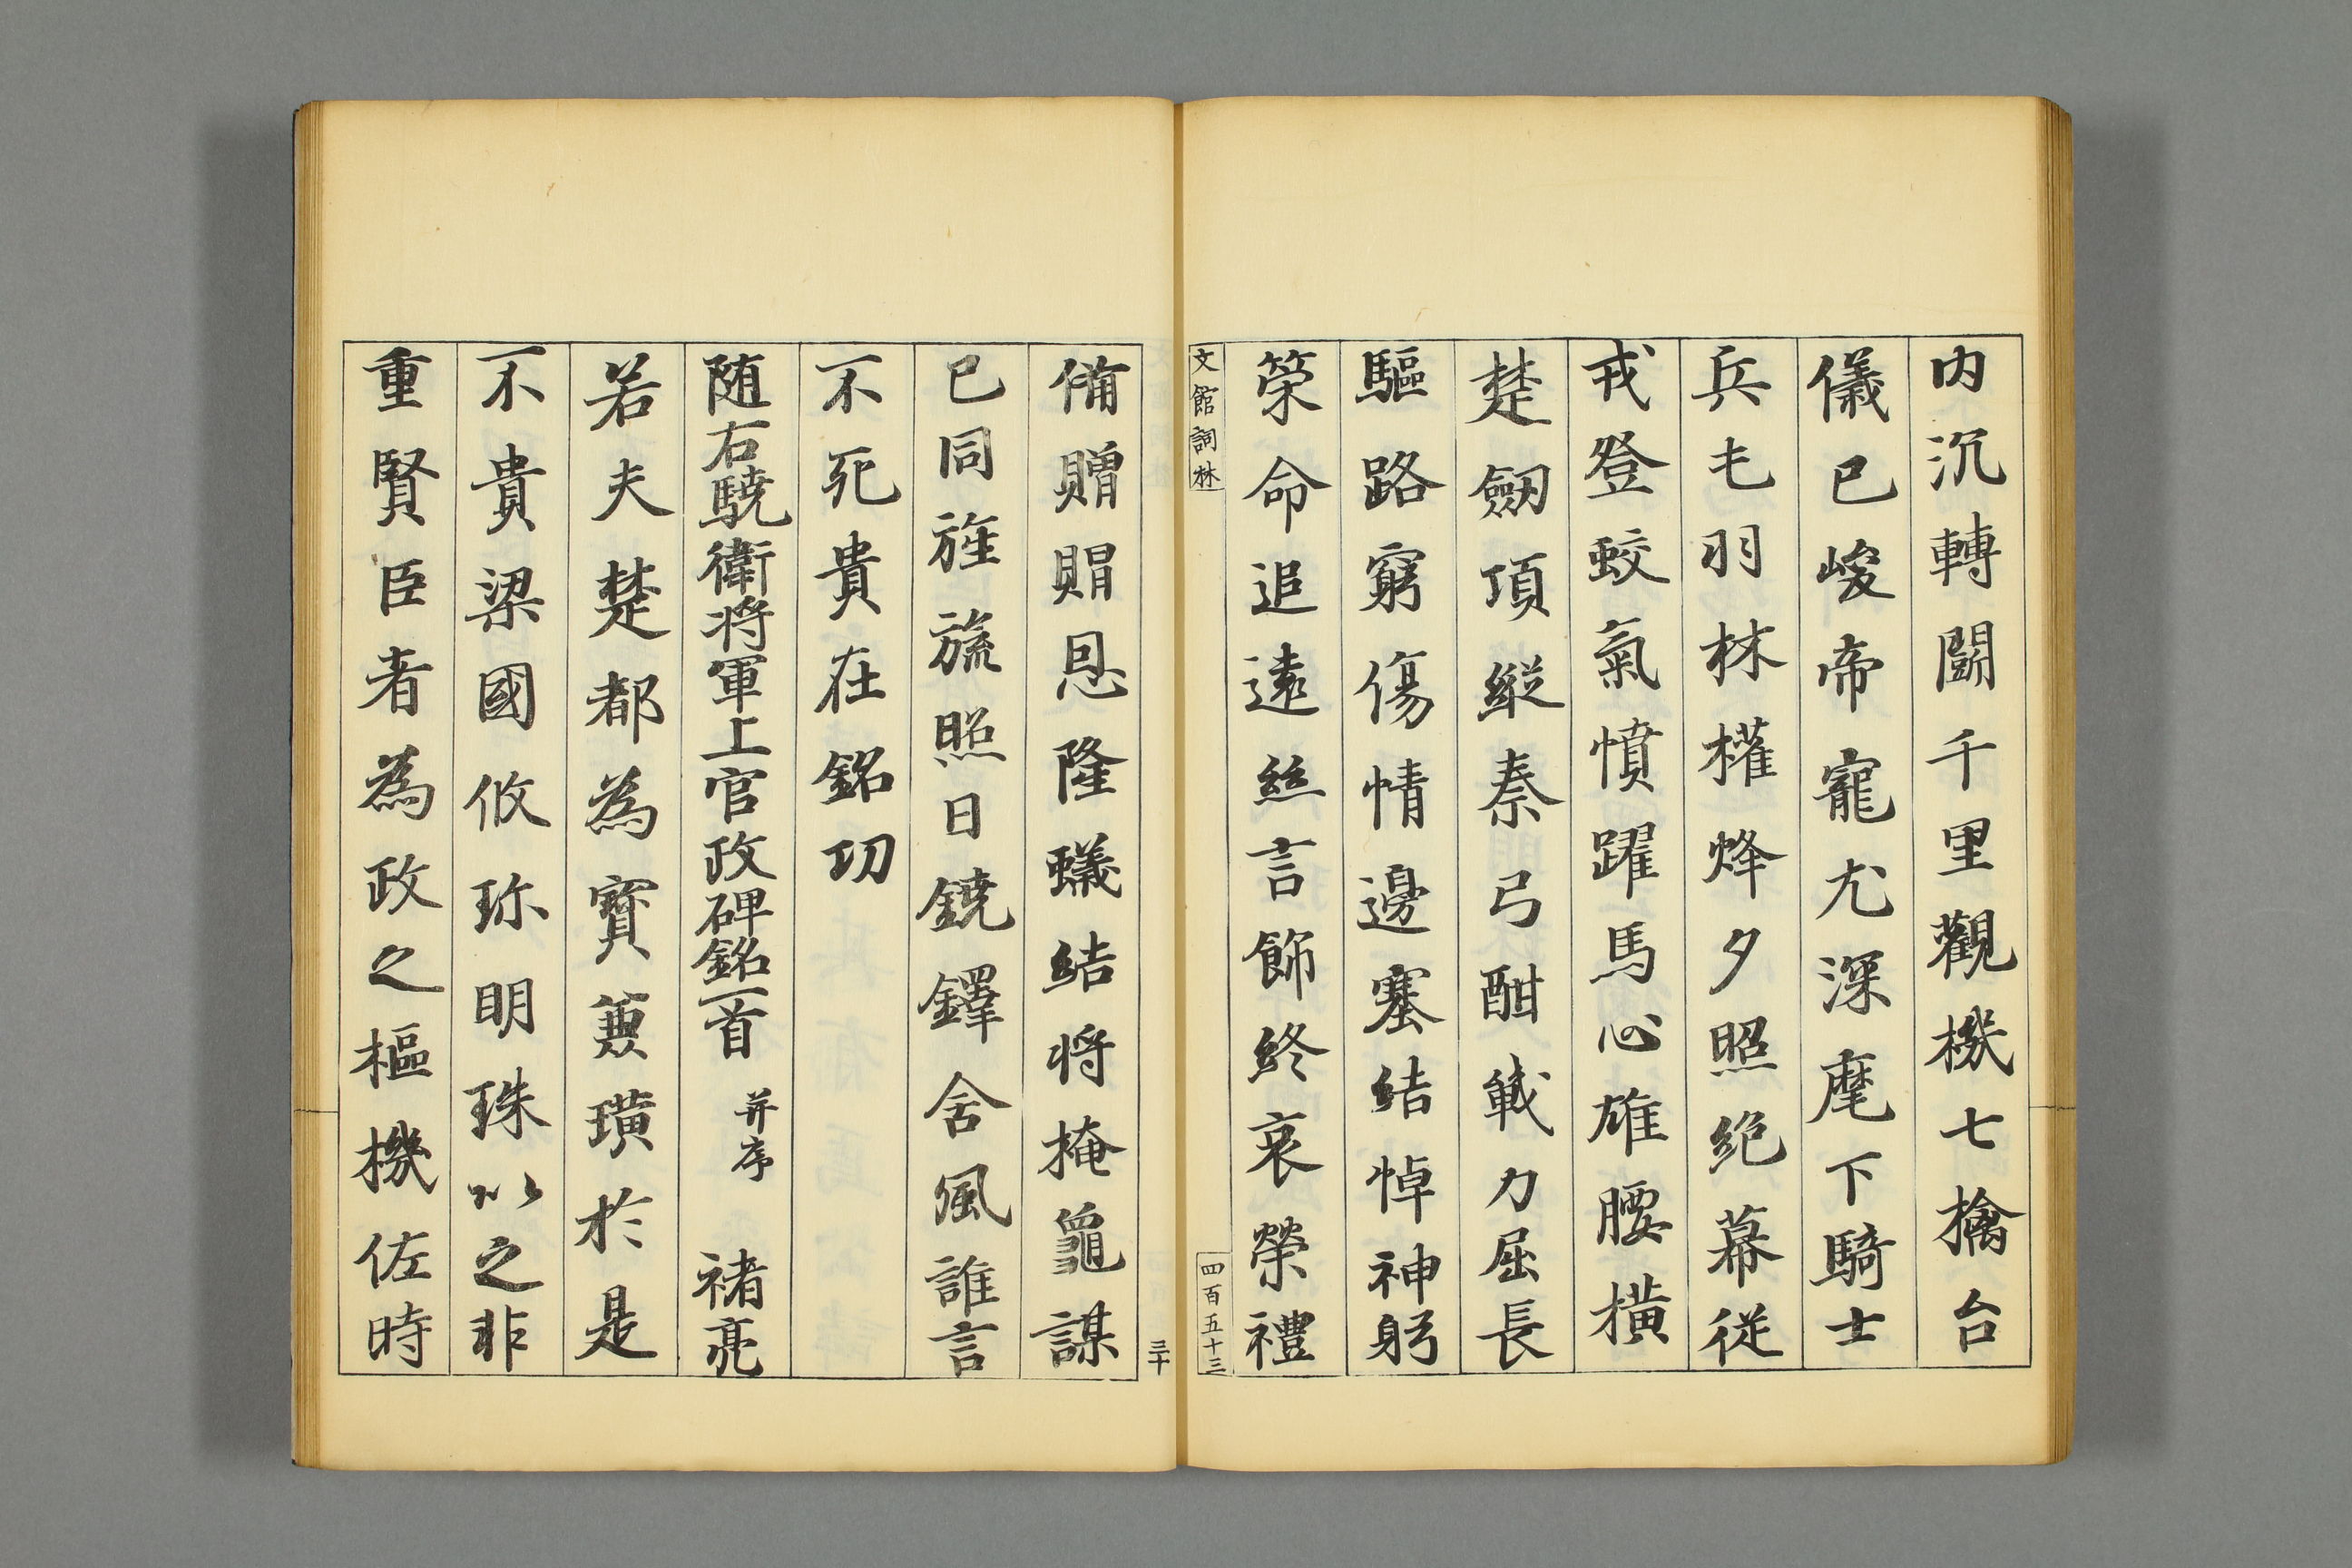 内沉轉鬪千里觀機七擒台
儀已峻帝寵尤深麾下騎士
兵毛羽林權烽夕照絕幕從
戎登蛟氣憤躍馬心雄腰橫
楚劔項縱秦弓酣戰力屈長
驅路窮傷情邊塞結悼神躬
榮命追遠絲言飾終哀榮禮
文館詞林
四百五十三
三十
備贈賵恩隆蟻結將掩龜謀
已同旌旒照日鐃鐸含風誰言
不死貴在銘功
随右驍衛将軍上官政碑銘一首 并序 褚亮
若夫楚都為寶蔑璜於是
不貴梁國攸珎明珠以之非
重賢臣者為政之樞機佐時